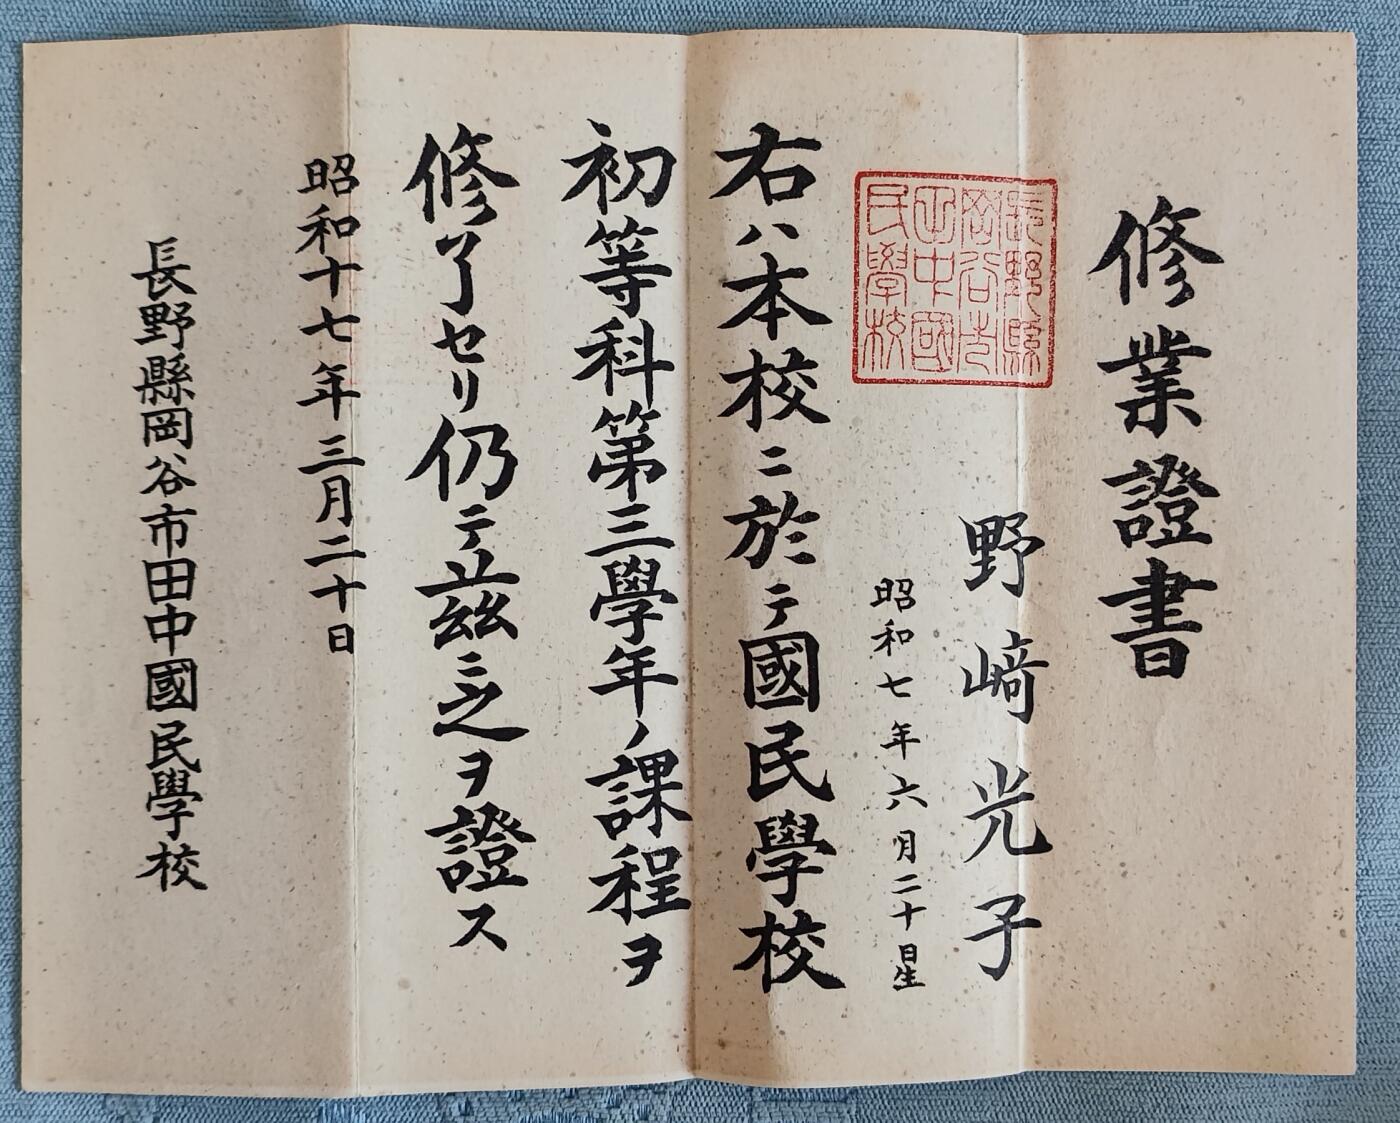 修業證書
野﨑光子
昭和七年六月二十日生
長野縣
岡谷市
田中國
民學校
右ハ本校ニ於テ國民學校
初等科第三學年ノ課程ヲ
修了セリ仍テ茲ニ之ヲ證ス
昭和十七年三月二十日
長野縣岡谷市田中國民學校